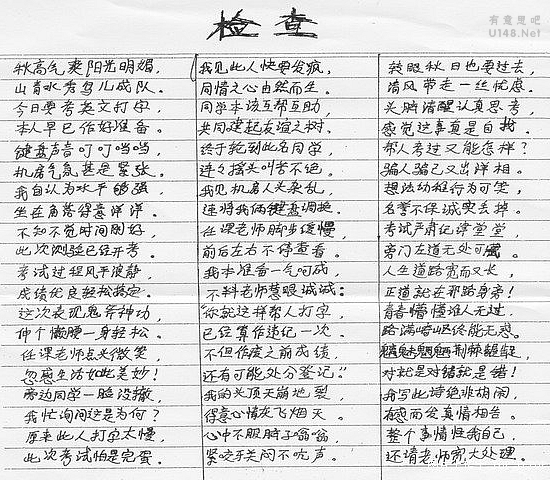 检查
有意思吧
U148.Net
秋高气爽阳光明媚,
山青水秀鸟儿成队。
今日要考英文打字,
本人早已作好准备。
键盘声音叮叮当当,
机房气氛甚是紧张。
我自认为水平够强,
坐在角落得意洋洋。
不知不觉时间刚好,
此次测验已经开考。
考试过程风平浪静,
成绩优良轻松搞定。
这次表现鬼斧神功,
伸个懒腰一身轻松。
任课老师点头微笑,
忽感生活如此美妙!
旁边同学一脸没撤,
我忙询问这是为何?
原来此人打字太慢,
此次考试怕是完蛋。
我见此人快要发疯,
同情之心由然而生。
同学本该互帮互助,
共同建起友谊之树。
终于轮到此名同学,
连々摇头叫苦不绝。
我见机房人头杂乱,
连将我俩键盘调换。
任课老师脚步缓慢,
前后左右不停查看。
我本准备一气呵成,
不料老师慧眼诚诚:
"你就这样帮人打字,
已经算作违纪一次。
不但作废之前成绩,
还有可能处分登记."
我的头顶天崩地裂,
得意心情灰飞烟灭。
心中不服脖子嗡嗡,
紧咬牙关闷不吭声。
转眼秋日也要过去,
清风带走一丝忧虑。
头脑清醒认真思考,
感觉这事真是自找。
帮人考过又能怎样?
骗人骗己又出洋相。
想法幼稚行为可笑,
名誉不保诚实丢掉。
考试严肃纪律堂堂,
旁门左道无处可藏。
人生道路宽而又长,
正道就在那路身旁!
青春懵懂谁人无过,
路满崎岖终能无惑。
魑魅魍魉荆棘龌龊,
对就是对错就是错!
我写此诗绝非胡闹,
有感而发真情相告。
整个事情怪我自己,
还请老师宽大处理。